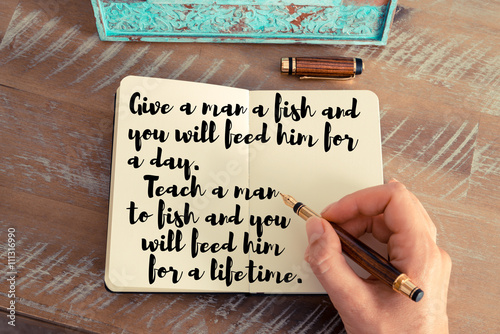 Give a man a fish and
you will feed him for
a day.
Teach a man
to fish and you
will feed him
for a lifetime.
#111316990